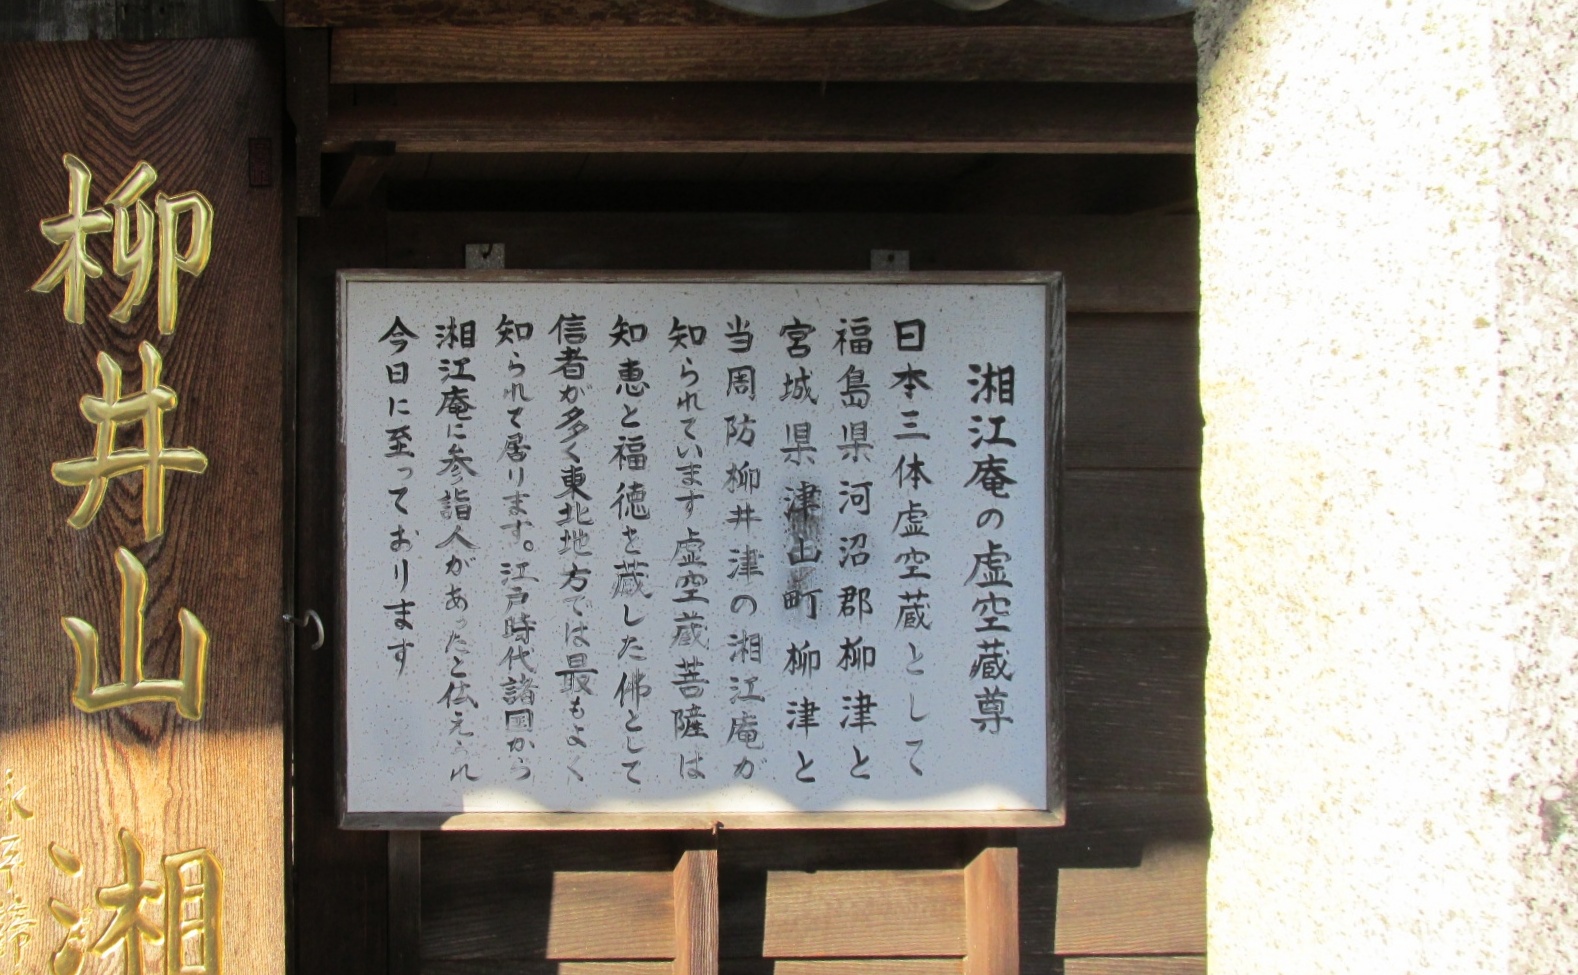 湘江庵の虚空蔵尊
日本三体虚空蔵として
福島県河沼郡柳津と
宮城県津山町柳津と
当周防柳井津の湘江庵が
知られています虚空蔵菩薩は
知恵と福徳を蔵した佛として
信者が多く東北地方では最もよく
知られて居ります。江戸時代諸国から
湘江庵に参詣人があったと伝えられ
今日に至っております
柳井山湘